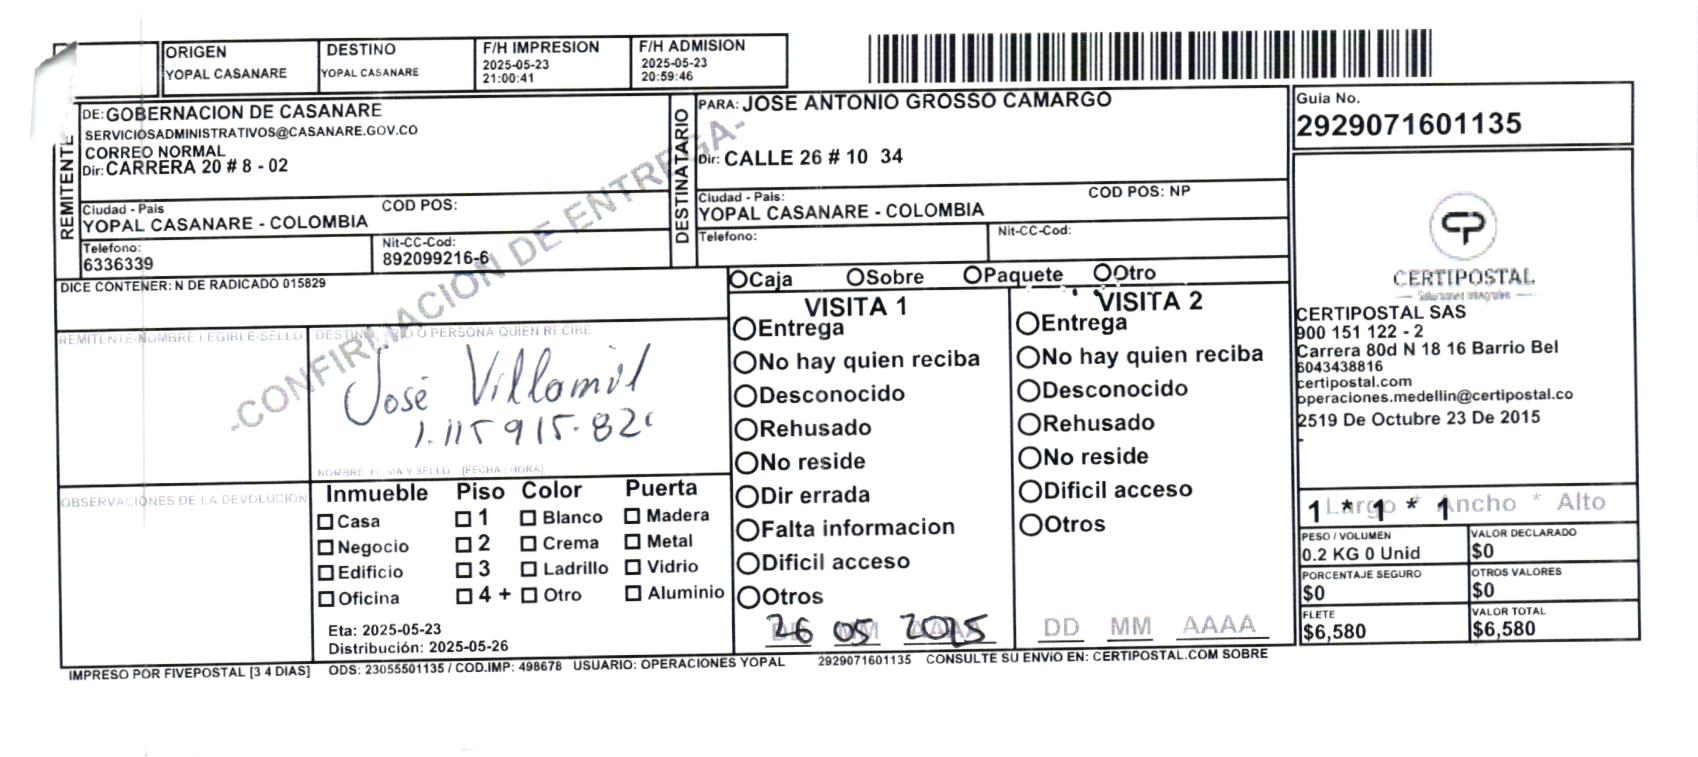 ORIGEN
YOPAL CASANARE
DESTINO
YOPAL CASANARE
F/H IMPRESION
2025-05-23
21:00:41
F/H ADMISION
2025-05-23
20:59:46
REMITENTE
DE: GOBERNACION DE CASANARE
SERVICIOSADMINISTRATIVOS@CASANARE.GOV.CO
CORREO NORMAL
Dir: CARRERA 20 # 8 - 02
Ciudad - Pais
COD POS:
YOPAL CASANARE - COLOMBIA
Telefono:
6336339
Nit-CC-Cod:
892099216-6
DESTINATARIO
PARA: JOSE ANTONIO GROSSO CAMARGO
Dir: CALLE 26 # 10 34
Ciudad - Pais:
COD POS: NP
YOPAL CASANARE - COLOMBIA
Telefono:
Nit-CC-Cod:
Guia No.
2929071601135
CP
CERTIPOSTAL
Soluciones Integrales
CERTIPOSTAL SAS
900 151 122 - 2
Carrera 80d N 18 16 Barrio Bel
6043438816
certipostal.com
operaciones.medellin@certipostal.co
2519 De Octubre 23 De 2015
-
-CONFIRMACION DE ENTREGA-
DICE CONTENER: N DE RADICADO 015829
REMITENTE-NOMBRE LEGIBLE-SELLO
PERSONA QUIEN RECIBE
José Villamil
1.115915.82
[FECHA / HORA]
OBSERVACIONES DE LA DEVOLUCION
Inmueble
Casa
Negocio
Edificio
Oficina
Piso
1
2
3
4 +
Color
Blanco
Crema
Ladrillo
Otro
Puerta
Madera
Metal
Vidrio
Aluminio
Eta: 2025-05-23
Distribución: 2025-05-26
Caja Sobre Paquete Otro
VISITA 1
Entrega
No hay quien reciba
Desconocido
Rehusado
No reside
Dir errada
Falta informacion
Dificil acceso
Otros
DD MM AAAA
26 05 2025
VISITA 2
Entrega
No hay quien reciba
Desconocido
Rehusado
No reside
Dificil acceso
Otros
DD MM AAAA
Largo * Ancho * Alto
1 * 1 * 1
PESO / VOLUMEN
0.2 KG 0 Unid
VALOR DECLARADO
$0
PORCENTAJE SEGURO
$0
OTROS VALORES
$0
FLETE
$6,580
VALOR TOTAL
$6,580
IMPRESO POR FIVEPOSTAL [3 4 DIAS] ODS: 23055501135 / COD.IMP: 498678 USUARIO: OPERACIONES YOPAL 2929071601135 CONSULTE SU ENVIO EN: CERTIPOSTAL.COM SOBRE